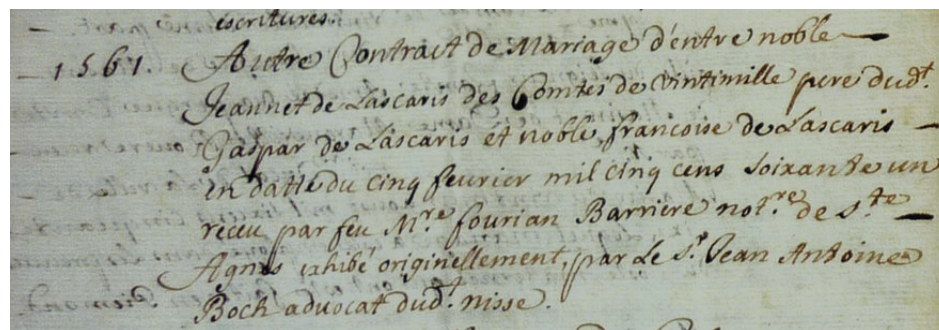 éscritures.
1561. Autre Contract de Mariage d'entre noble
Jeannet de Lascaris des Comtes de Vintimille pere dud.t
Gaspar de Lascaris et noble francoise de Lascaris
en datte du cinq feurier mil cinq cens soixante un
receu par feu M.re fourian Barriere not.re de s.te
Agnes exhibé originellement, par Le s.r Jean Antoine
Bock aduocat dud.t nisse.